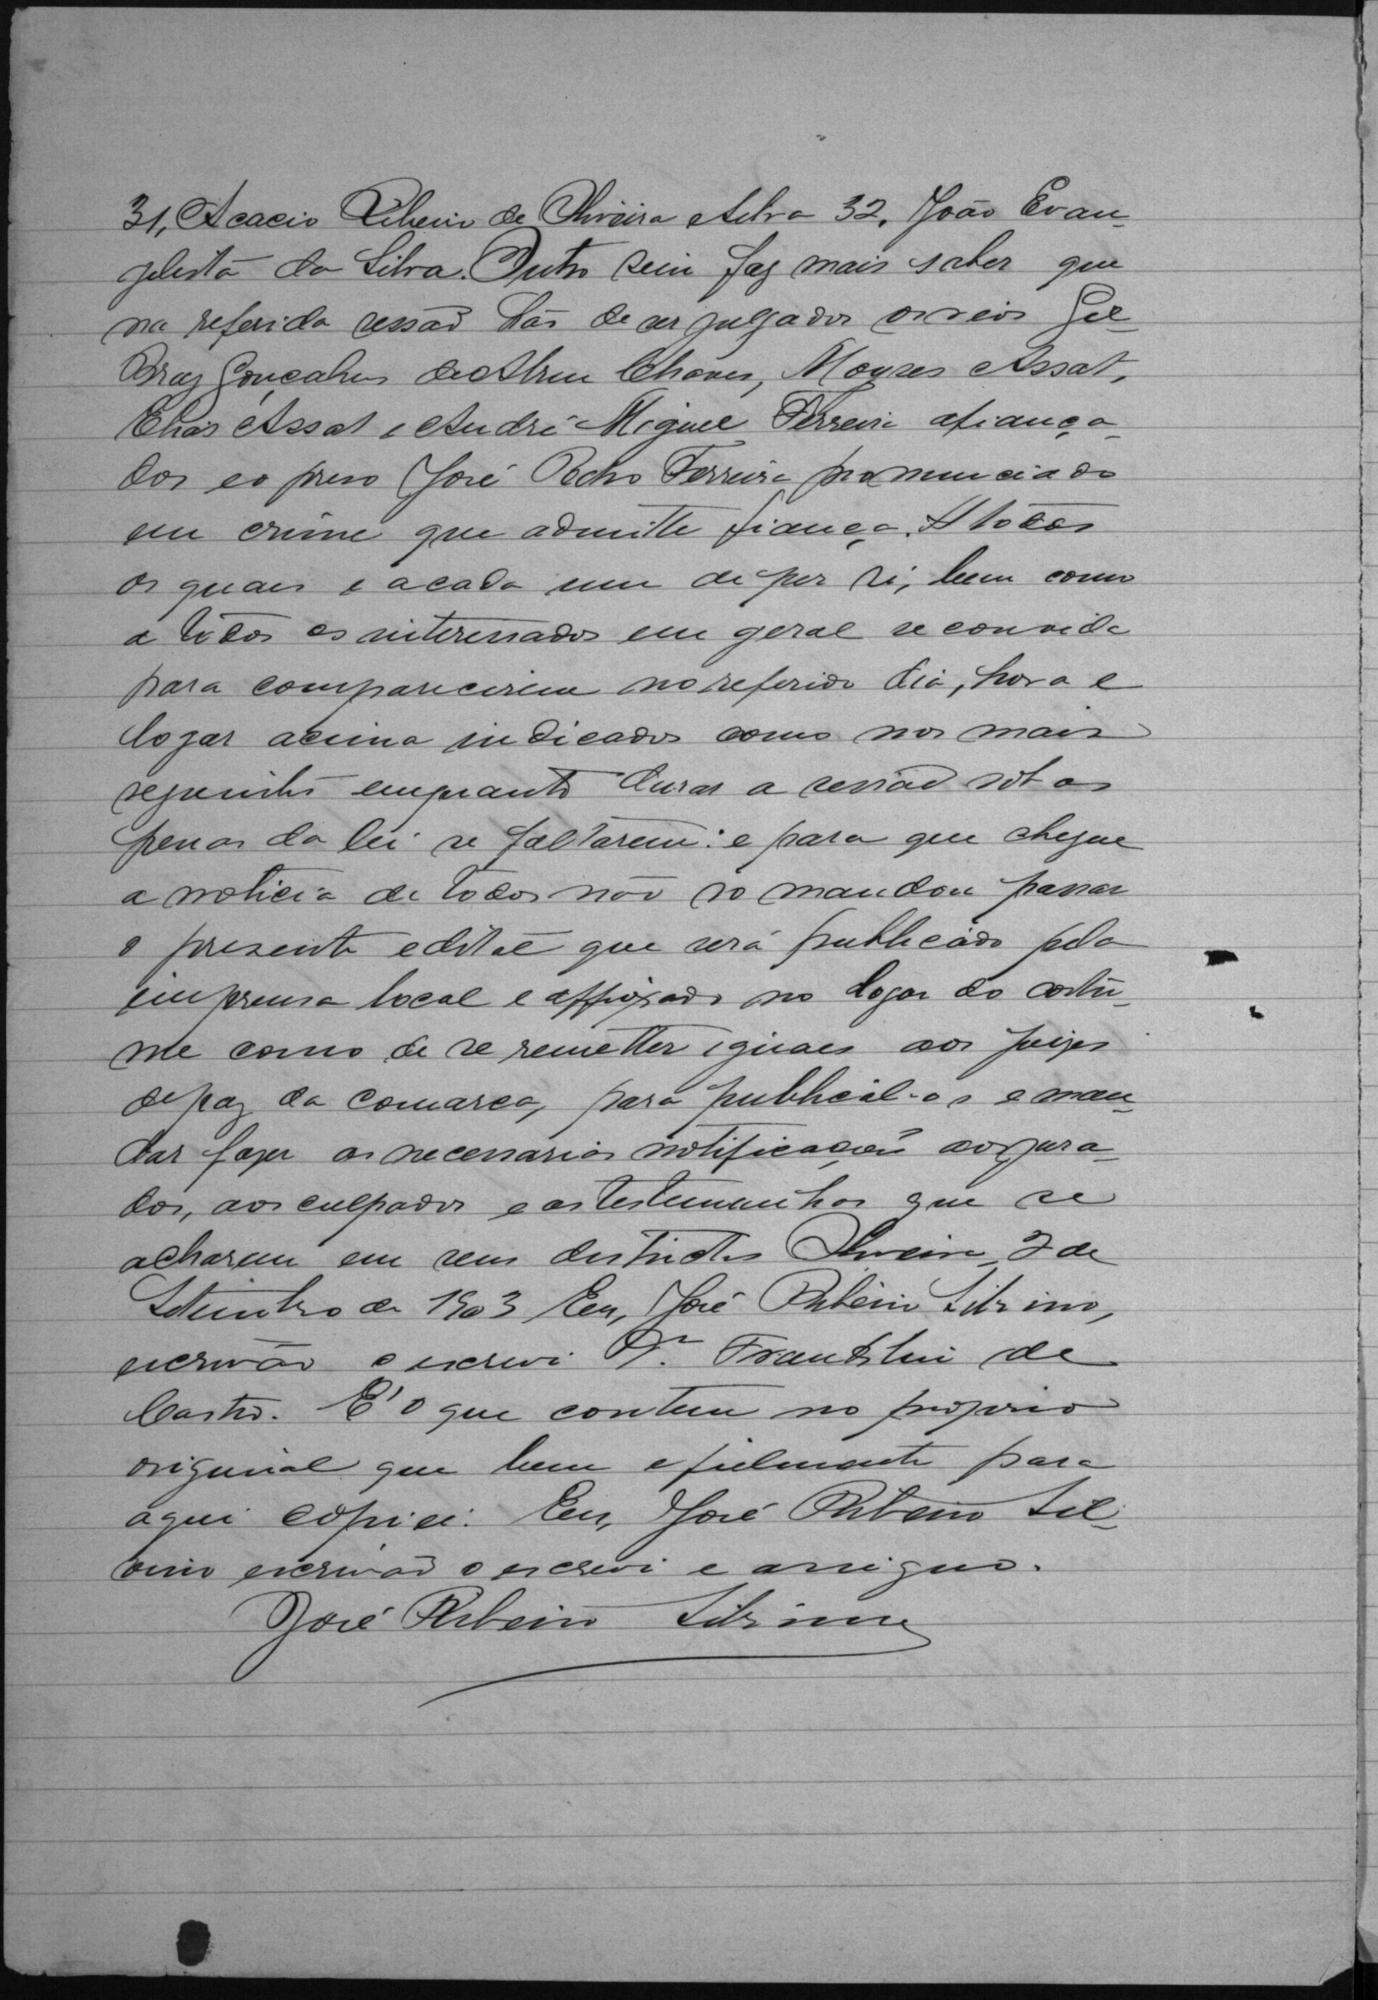 31, Acacio Ribeiro de Oliveira e Silva 32, João Evan-
gelista da Silva. Outro sim faz mais saber que
na referida sessão hão de ser julgados os réos Gil-
Braz Gonçalves de Abreu Chaves, Moyses Assat,
Elias Assat e André Miguel Ferreira afiança-
dos e o preso José Pedro Ferreira pronunciado
em crime que admitte fiança. A todos
os quaes e a cada um de per si, bem como
a todos os interessados em geral se convida
para comparecerem no referido dia, hora e
logar acima indicados como nos mais
seguintes emquanto durar a sessão sob as
penas da lei se faltarem: e para que chegue
a noticia de todos não só mandou passar
o presente edital que será publicado pela
imprensa local e affixado no logar do costu-
me como de se remetter iguaes aos juizes
de paz da comarca, para publical-os e man-
dar fazer as necessarias notificações aos jura-
dos, aos culpados e as testemunhas que se
acharem em seus districtos Oliveira, 2 de
Setembro de 1903 Eu, José Ribeiro Silvino,
escrivão o escrevi Dr. Franklin de
Castro. E' o que contem no proprio
original que bem e fielmente para
aqui copiei. Eu, José Ribeiro Sil-
vino escrivão o escrevi e assigno.
José Ribeiro Silvino